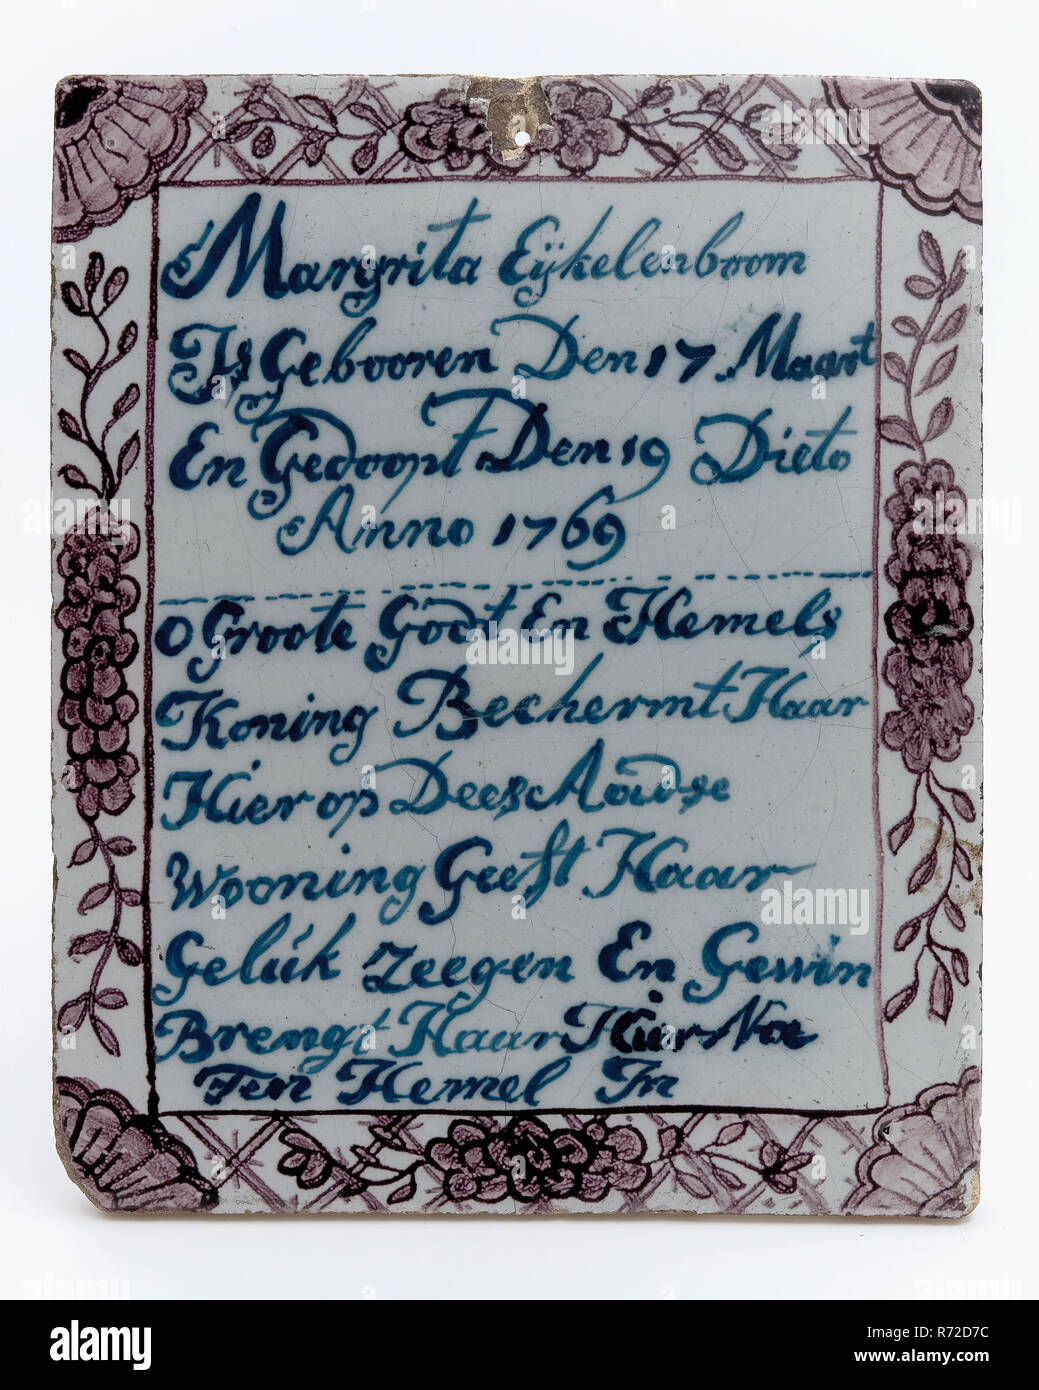 Margrita Eÿkelenboom
Is Gebooren Den 17 Maart
En Gedoopt Den 19 Dieto
Anno 1769
O Groote Godt En Hemels
Koning Bechermt Haar
Hier op Dees Aodse
Wooning Geeft Haar
Gelúk Zeegen En Gewin
Brengt Haar Hier Na
Ten Hemel In
alamy
Image ID: R72D7C
www.alamy.com